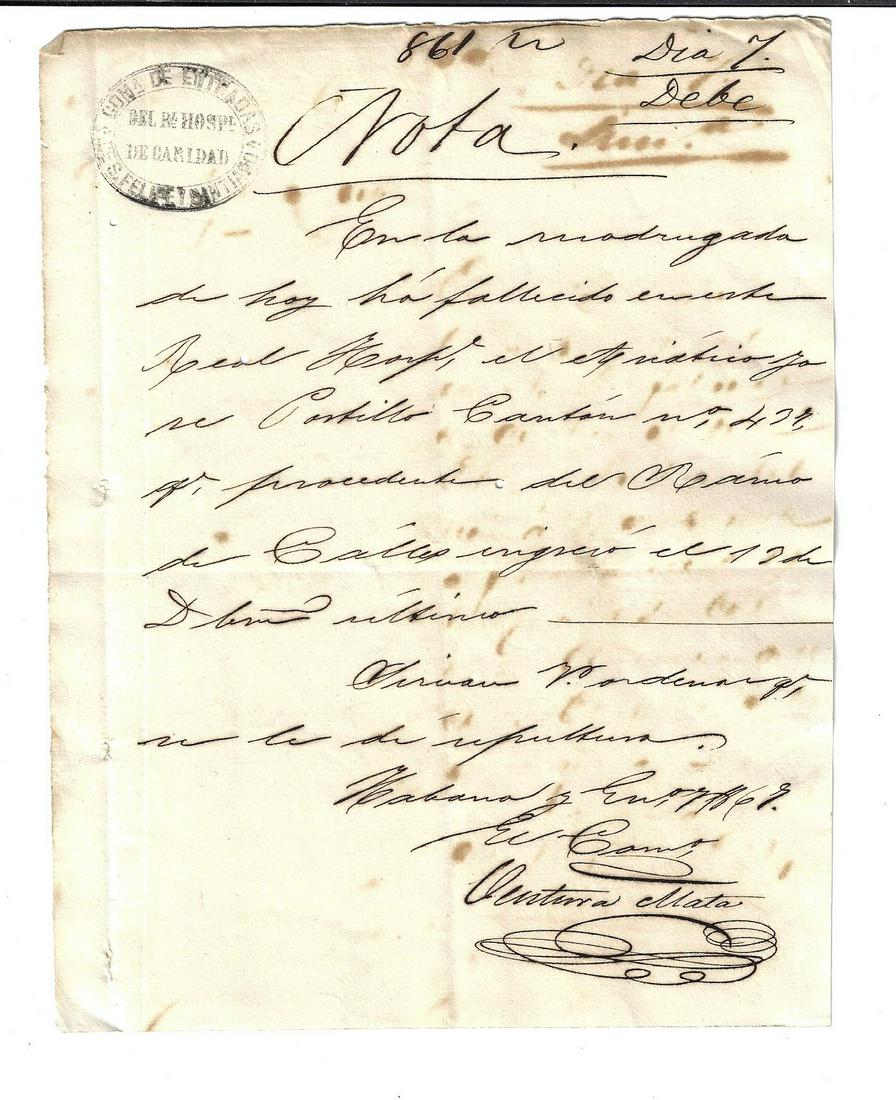 861
Dia 7.
Debe
COMA DE ENTRADAS
DEL Rl. HOSPl.
DE CARIDAD
S. FELIPE Y SANTIAGO
Nota.
En la madrugada
de hoy há fallecido en este
Real Hospl. el Asiático Jo
se Portillo Cantón no.
qe. procedente del Rámo
de Calles ingresó el 12 de
Dbre último
Sirvan V. ordenar qe.
se le dé sepultura.
Habana y Eno. 7/867.
El Como.
Ventura Mata